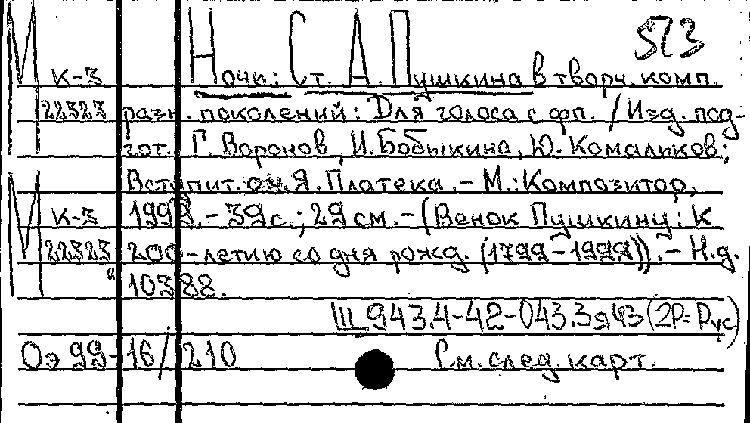 М Ночи: Ст. А. Пушкина в творч. комп. 523
К-3
22323 разн. поколений: Для голоса с фп. / Изд. под-
гот. Г. Воронов, И. Бобыкина, Ю. Комальков;
М Вступит. сл. Я. Платека. - М.: Композитор,
К-3 1998. - 39 с.; 29 см. - (Венок Пушкину: К
22323 200-летию со дня рожд. (1799-1999)). - Н.д.
" 10388.
Щ943.4-42-043.3я43(2Р=Рус)
Оэ 99-16/210 См. след. карт.